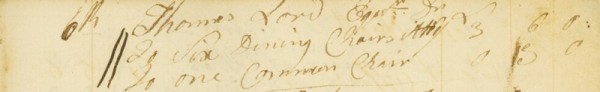 6th Thomas Lord Esqr. Dr
To Six Dining Chairs 3 6 0
To one Common Chair 0 3 0